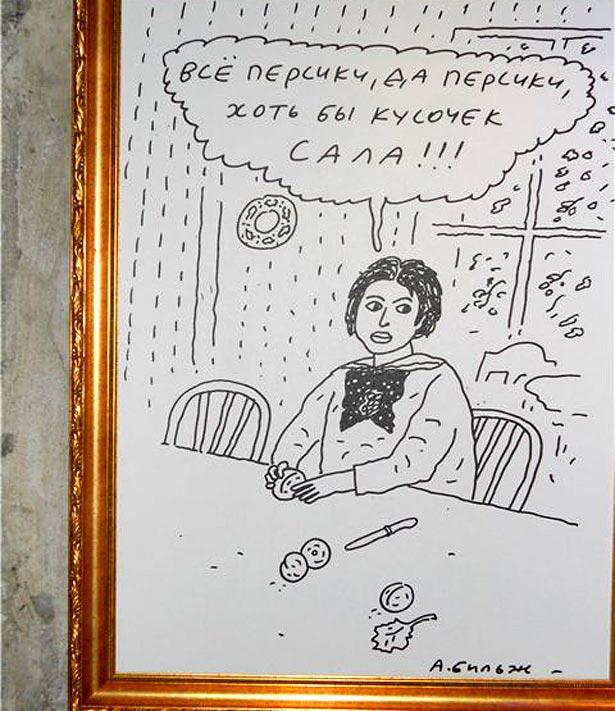 ВСЁ ПЕРСИКИ, ДА ПЕРСИКИ,
ХОТЬ БЫ КУСОЧЕК
САЛА!!!
А. Бильжо –